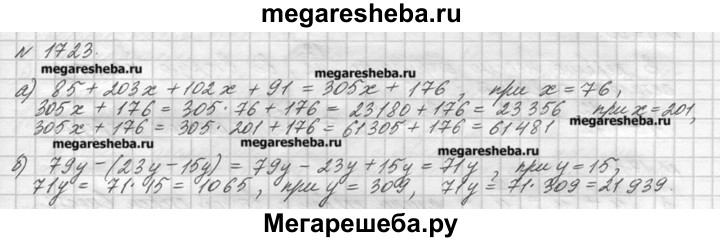 megaresheba.ru
№ 1723.
megaresheba.ru megaresheba.ru
а) 85 + 203x + 102x + 91 = 305x + 176, при x = 76,
305x + 176 = 305·76 + 176 = 23180 + 176 = 23356 при x = 201,
305x + 176 = 305·201 + 176 = 61305 + 176 = 61481
megaresheba.ru megaresheba.ru
б) 79y - (23y - 15y) = 79y - 23y + 15y = 71y, при y = 15,
71y = 71·15 = 1065, при y = 309, 71y = 71·309 = 21939.
Мегарешеба.ру